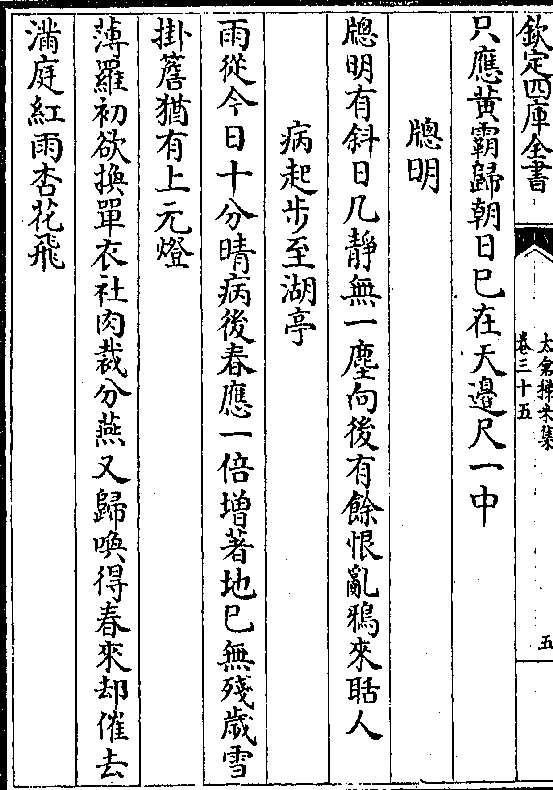 欽定四庫全書
太倉稊米集
卷三十五
五
只應黄霸歸朝日已在天邉尺一中
牎明
牎明有斜日几靜無一塵向後有餘恨亂鴉來聒人
病起步至湖亭
雨從今日十分晴病後春應一倍增著地已無殘歲雪
掛簷猶有上元燈
薄羅初欲換單衣社肉裁分燕又歸喚得春來却催去
滿庭紅雨杏花飛